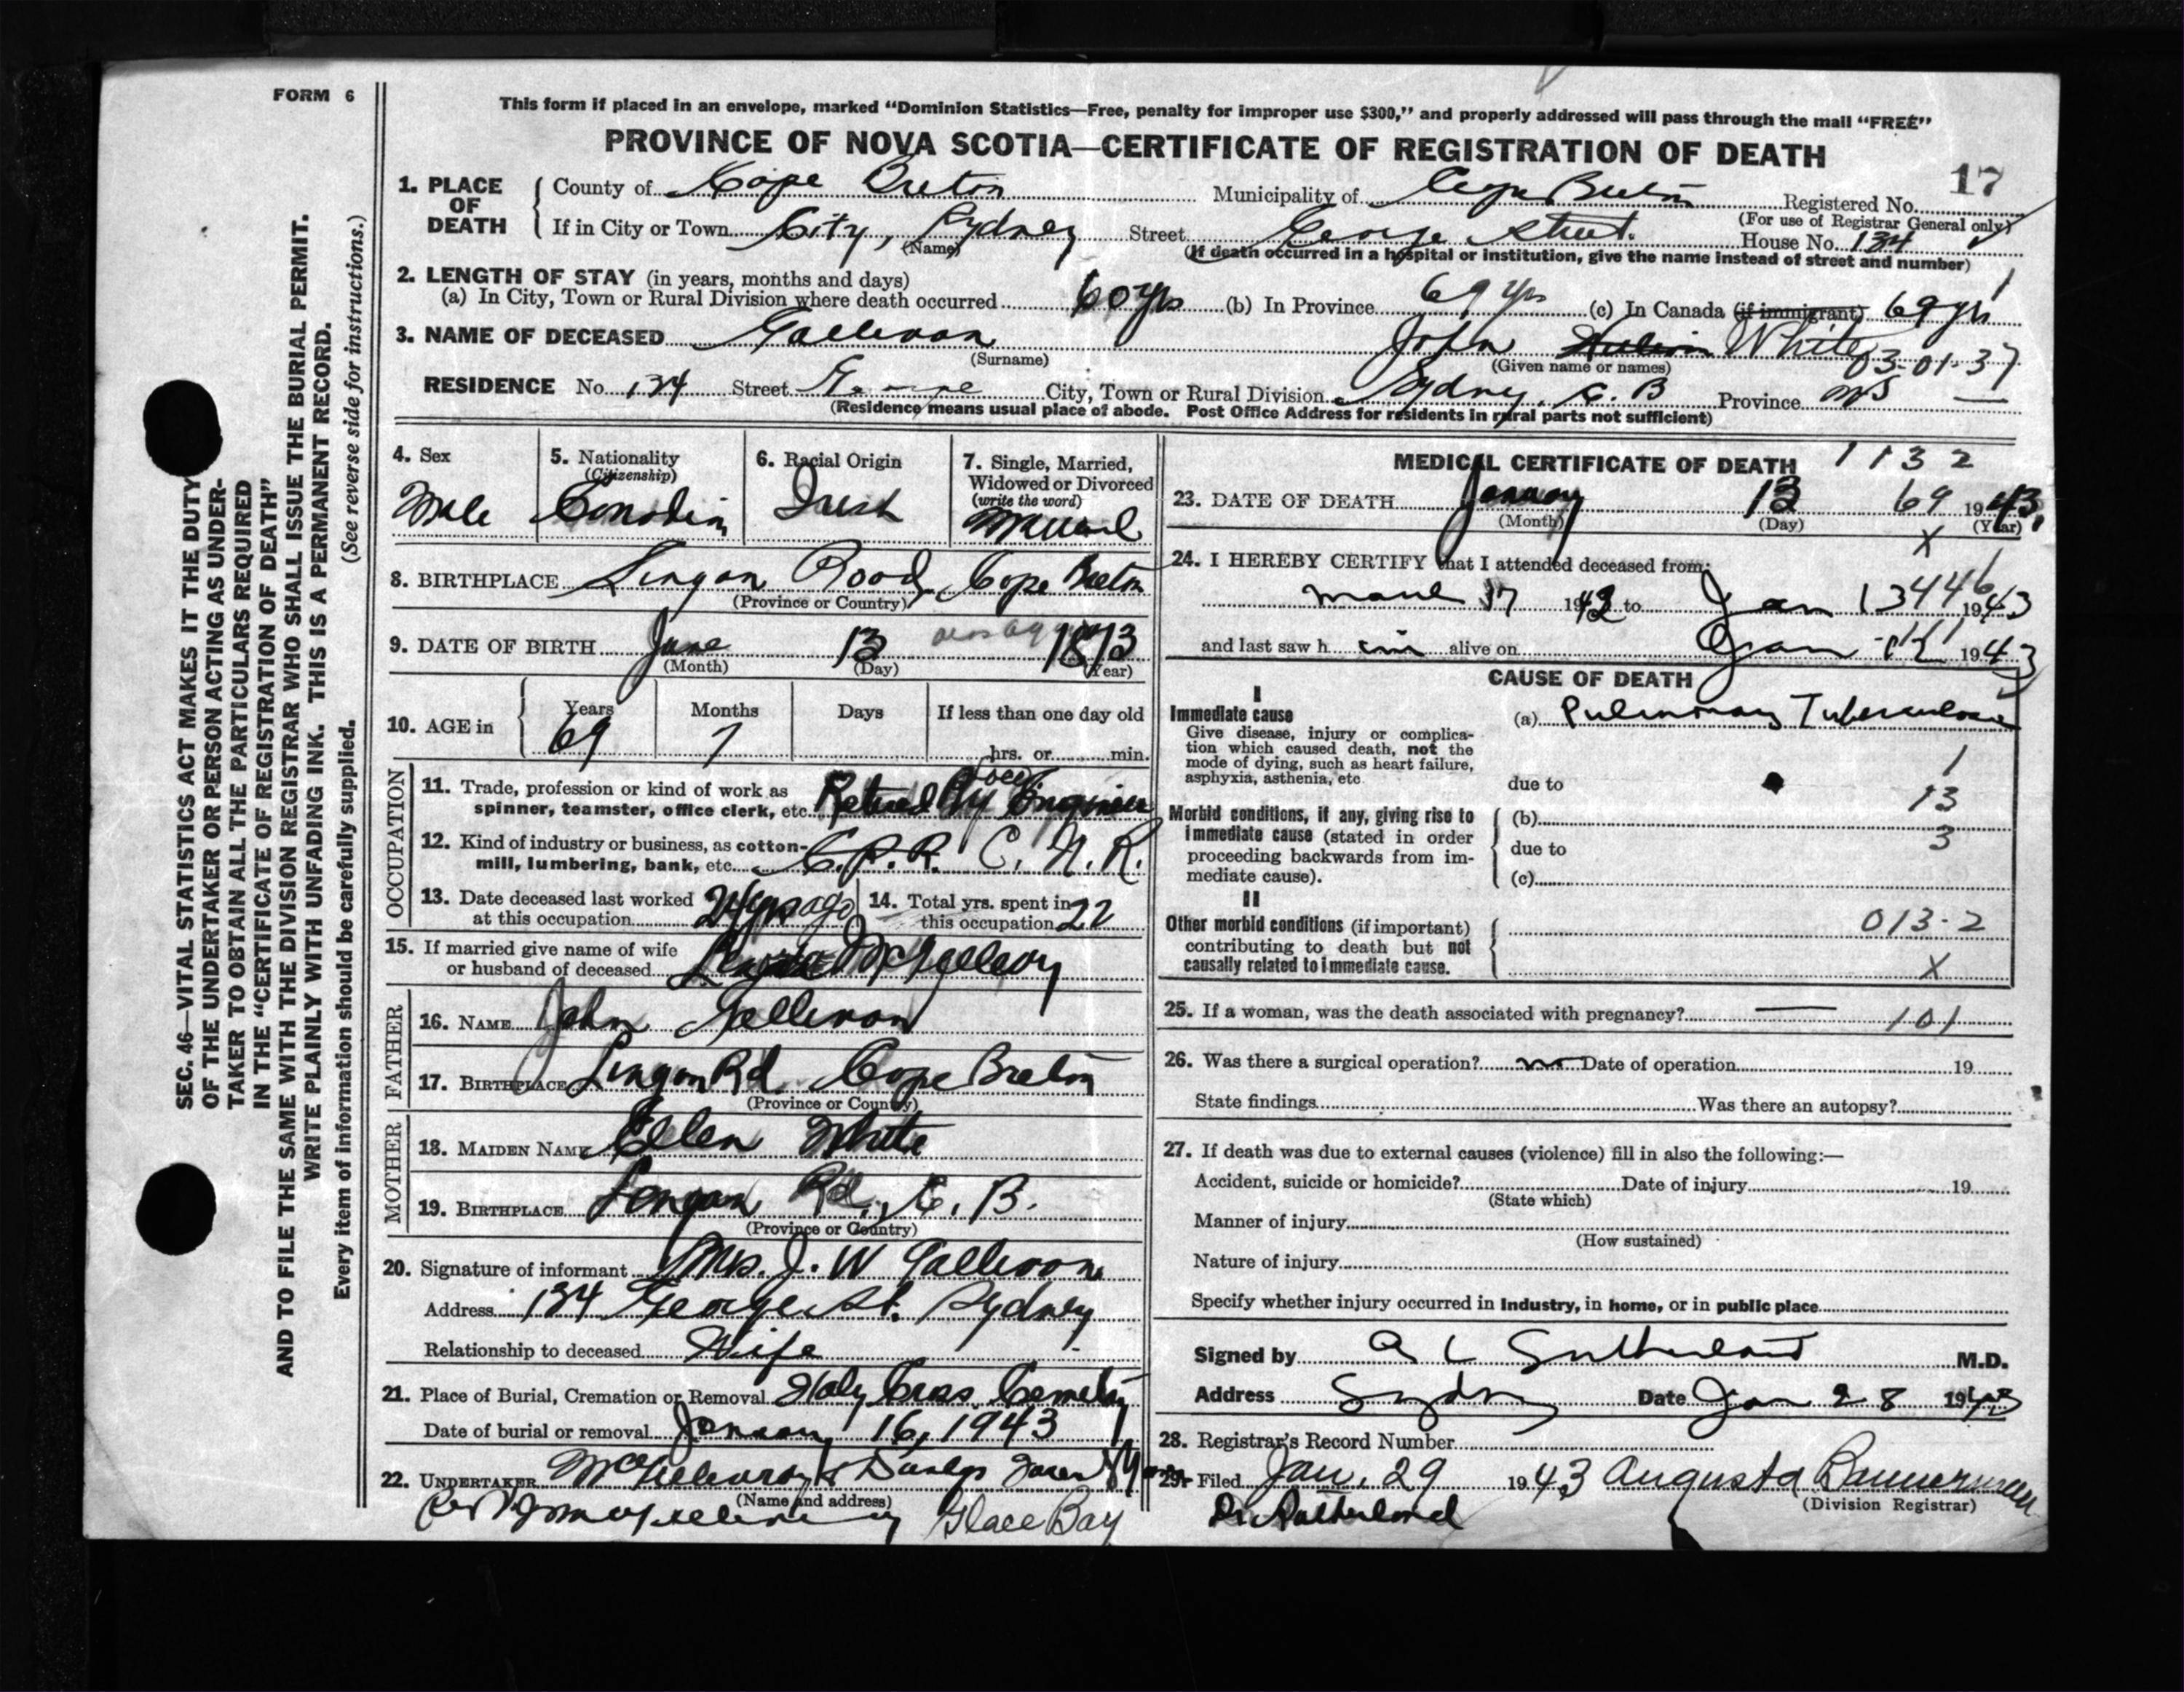 FORM 6
This form if placed in an envelope, marked “Dominion Statistics—Free, penalty for improper use $300,” and properly addressed will pass through the mail “FREE”
PROVINCE OF NOVA SCOTIA—CERTIFICATE OF REGISTRATION OF DEATH
17
1. PLACE OF DEATH
County of Cape Breton Municipality of Cape Breton Registered No.
(For use of Registrar General only)
If in City or Town City, Sydney Street George Street House No. 134
(Name) (If death occurred in a hospital or institution, give the name instead of street and number)
2. LENGTH OF STAY (in years, months and days)
(a) In City, Town or Rural Division where death occurred 60 yrs (b) In Province 69 yrs (c) In Canada (if immigrant) 69 yrs
1
3. NAME OF DECEASED Gallivan John White
(Surname) (Given name or names) 03-01-37
RESIDENCE No. 134 Street George City, Town or Rural Division Sydney, C. B Province NS
(Residence means usual place of abode. Post Office Address for residents in rural parts not sufficient)
4. Sex
Male
5. Nationality
(Citizenship)
Canadian
6. Racial Origin
Irish
7. Single, Married, Widowed or Divorced
(write the word)
Married
8. BIRTHPLACE Lingan Road, Cape Breton
(Province or Country)
9. DATE OF BIRTH June 13 1873
(Month) (Day) (Year)
10. AGE in
Years 69
Months 7
Days
If less than one day old
hrs. or min.
OCCUPATION
11. Trade, profession or kind of work as
spinner, teamster, office clerk, etc. Retired Ry Loco Engineer
12. Kind of industry or business, as cotton-
mill, lumbering, bank, etc. C.P.R. C. N. R.
13. Date deceased last worked
at this occupation 24 yrs ago
14. Total yrs. spent in
this occupation 22
15. If married give name of wife
or husband of deceased
FATHER
16. NAME John Gallivan
17. BIRTHPLACE Lingan Rd. Cape Breton
(Province or Country)
MOTHER
18. MAIDEN NAME Ellen White
19. BIRTHPLACE Lingan Rd., C. B.
(Province or Country)
20. Signature of informant Mrs. J. W Gallivan
Address 134 George St. Sydney
Relationship to deceased Wife
21. Place of Burial, Cremation or Removal Holy Cross Cemetry
Date of burial or removal January 16, 1943
22. UNDERTAKER
(Name and address)
Glace Bay
MEDICAL CERTIFICATE OF DEATH 1132
23. DATE OF DEATH January 13 69 1943
(Month) (Day) (Year)
X
24. I HEREBY CERTIFY that I attended deceased from:
March 17 1942 to Jan 13 1943
446
and last saw him alive on Jan 1943
CAUSE OF DEATH
I
Immediate cause
Give disease, injury or complica-
tion which caused death, not the
mode of dying, such as heart failure,
asphyxia, asthenia, etc
(a) Pulmonary Tuberculosis
1
due to
13
Morbid conditions, if any, giving rise to
immediate cause (stated in order
proceeding backwards from im-
mediate cause).
(b)
3
due to
(c)
II
Other morbid conditions (if important)
contributing to death but not
causally related to immediate cause.
013-2
X
25. If a woman, was the death associated with pregnancy? — 101
26. Was there a surgical operation? no Date of operation 19
State findings Was there an autopsy?
27. If death was due to external causes (violence) fill in also the following:—
Accident, suicide or homicide? Date of injury 19
(State which)
Manner of injury
(How sustained)
Nature of injury
Specify whether injury occurred in Industry, in home, or in public place
Signed by A L Sutherland M.D.
Address Sydney Date Jan 28 1943
28. Registrar's Record Number
29. Filed Jan. 29 1943 Augusta Bannerman
(Division Registrar)
Dr. Sutherland
SEC. 46—VITAL STATISTICS ACT MAKES IT THE DUTY
OF THE UNDERTAKER OR PERSON ACTING AS UNDER-
TAKER TO OBTAIN ALL THE PARTICULARS REQUIRED
IN THE “CERTIFICATE OF REGISTRATION OF DEATH”
AND TO FILE THE SAME WITH THE DIVISION REGISTRAR WHO SHALL ISSUE THE BURIAL PERMIT.
WRITE PLAINLY WITH UNFADING INK. THIS IS A PERMANENT RECORD.
Every item of information should be carefully supplied. (See reverse side for instructions.)